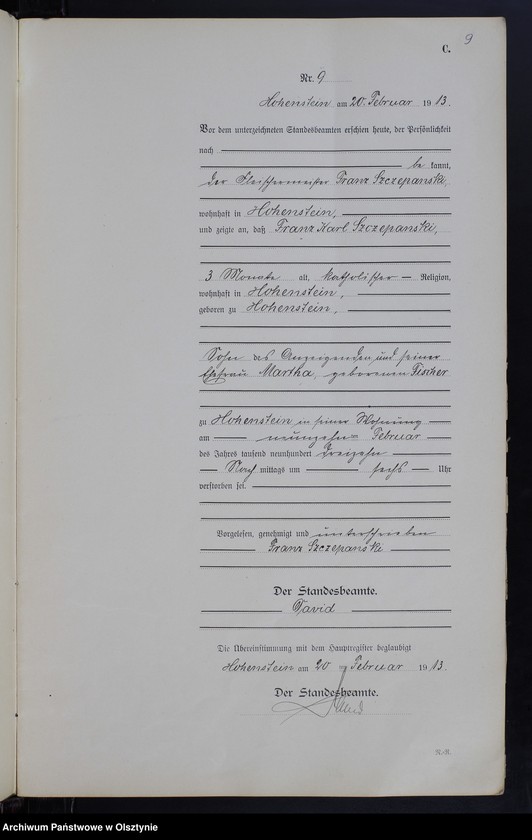 9
C.
Nr. 9
Hohenstein am 20. Februar 1913.
Vor dem unterzeichneten Standesbeamten erschien heute, der Persönlichkeit
nach
be kannt,
der Fleischermeister Franz Szczepanski,
wohnhaft in Hohenstein,
und zeigte an, daß Franz Karl Szczepanski,
3 Monate alt, katholischer Religion,
wohnhaft in Hohenstein,
geboren zu Hohenstein,
Sohn des Anzeigenden und seiner
Ehefrau Martha, geborenen Fischer
zu Hohenstein in seiner Wohnung
am neunzehn= Februar
des Jahres tausend neunhundert dreizehn
Nach mittags um sechs Uhr
verstorben sei.
Vorgelesen, genehmigt und unterschrieben
Franz Szczepanski
Der Standesbeamte.
David
Die Übereinstimmung mit dem Hauptregister beglaubigt
Hohenstein am 20 Februar 1913.
Der Standesbeamte.
David
Archiwum Państwowe w Olsztynie